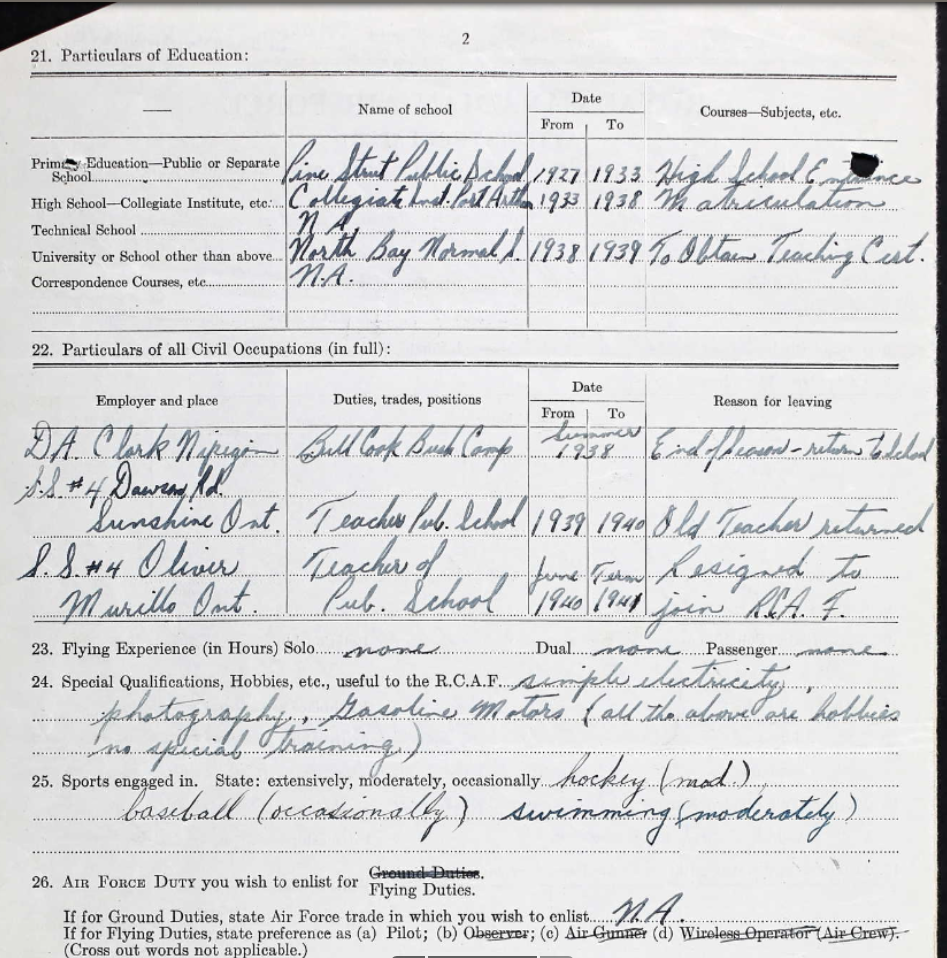 2
21. Particulars of Education:
— Name of school Date Courses—Subjects, etc.
From To
Primary Education—Public or Separate
School Pine Street Public School 1927 1933 High School Entrance
High School—Collegiate Institute, etc. Collegiate Inst. Port Arthur 1933 1938 Matriculation
Technical School N A
University or School other than above North Bay Normal S. 1938 1939 To Obtain Teaching Cert.
Correspondence Courses, etc. N.A.
22. Particulars of all Civil Occupations (in full):
Employer and place Duties, trades, positions Date Reason for leaving
From To
D.A. Clark Nipigon Bull Cook Bush Camp Summer 1938 End of Season - return to School
S.S. #4 Dawson Rd.
Sunshine Ont. Teacher Pub. School 1939 1940 Old Teacher returned
S.S. #4 Oliver Teacher of June Term Resigned to
Murillo Ont. Pub. School 1940 1941 join R.C.A.F.
23. Flying Experience (in Hours) Solo none Dual none Passenger none
24. Special Qualifications, Hobbies, etc., useful to the R.C.A.F. simple electricity,
photography, Gasoline Motors (all the above are hobbies
no special training)
25. Sports engaged in. State: extensively, moderately, occasionally hockey (mod.)
baseball (occasionally) swimming (moderately)
26. AIR FORCE DUTY you wish to enlist for Ground Duties.
Flying Duties.
If for Ground Duties, state Air Force trade in which you wish to enlist N.A.
If for Flying Duties, state preference as (a) Pilot; (b) Observer; (c) Air Gunner (d) Wireless Operator (Air Crew).
(Cross out words not applicable.)